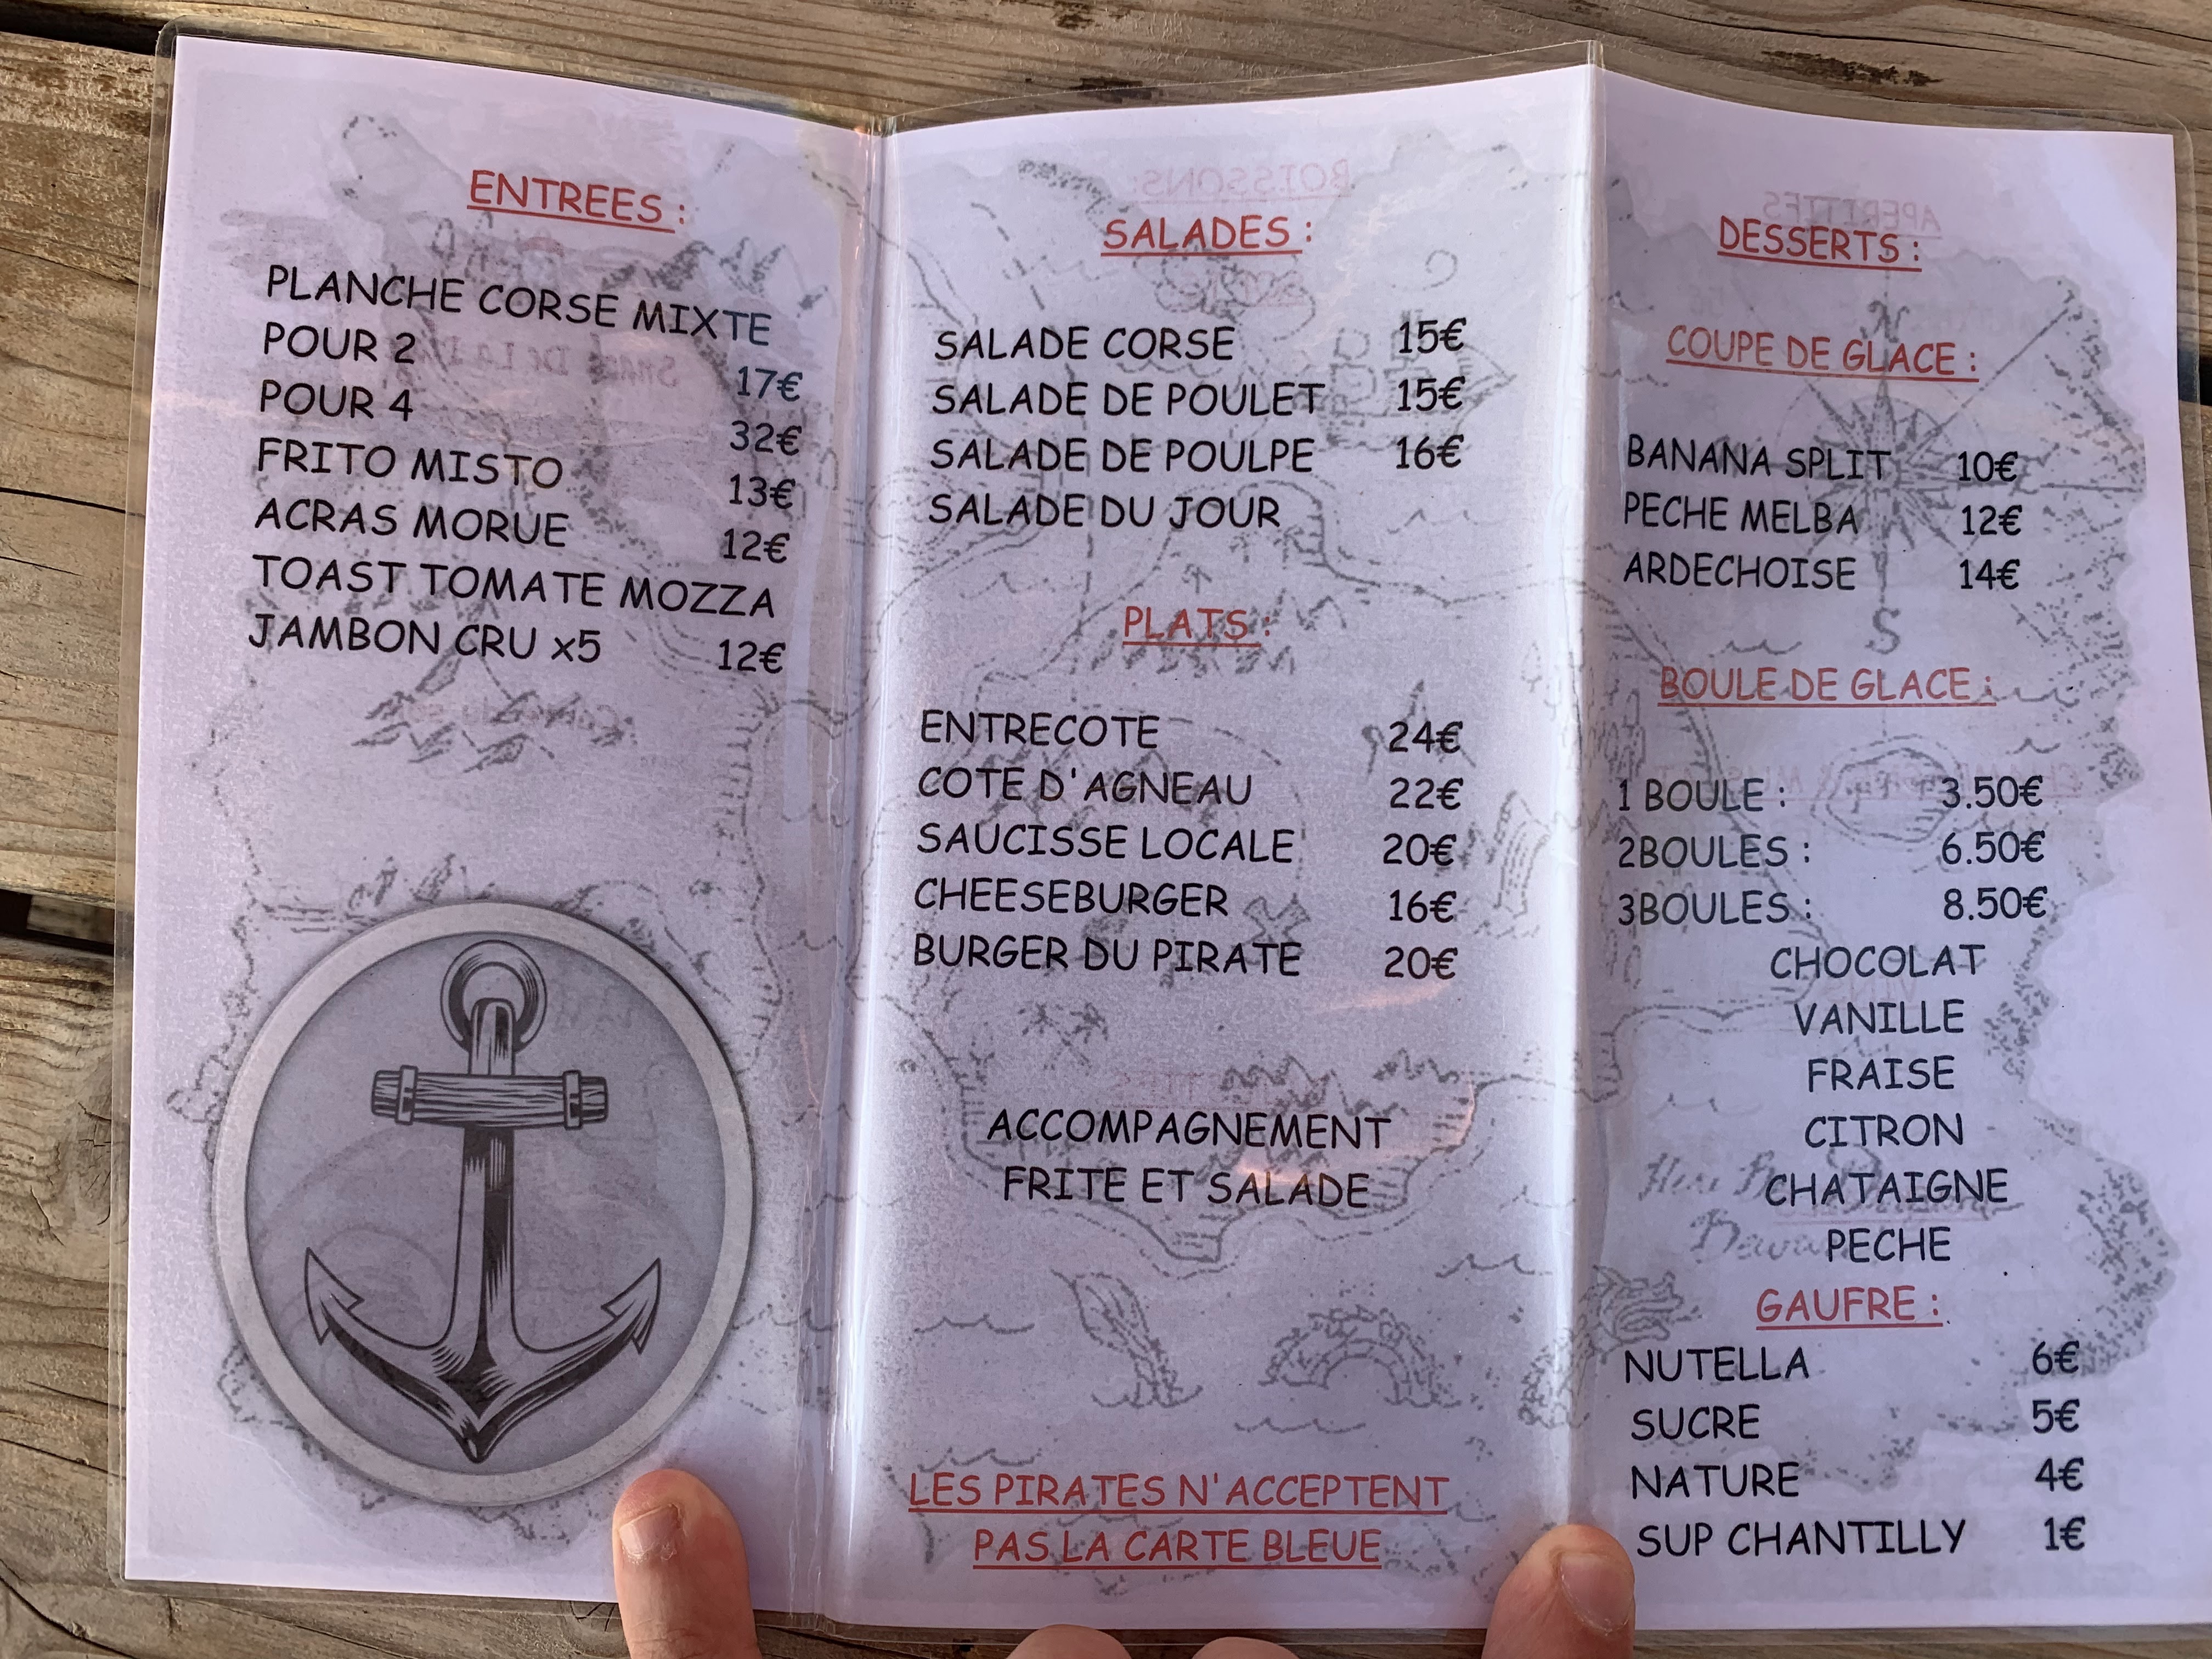 ENTREES :
PLANCHE CORSE MIXTE
POUR 2 17€
POUR 4 32€
FRITO MISTO 13€
ACRAS MORUE 12€
TOAST TOMATE MOZZA
JAMBON CRU x5 12€
SALADES :
SALADE CORSE 15€
SALADE DE POULET 15€
SALADE DE POULPE 16€
SALADE DU JOUR
PLATS :
ENTRECOTE 24€
COTE D'AGNEAU 22€
SAUCISSE LOCALE 20€
CHEESEBURGER 16€
BURGER DU PIRATE 20€
ACCOMPAGNEMENT
FRITE ET SALADE
LES PIRATES N'ACCEPTENT
PAS LA CARTE BLEUE
DESSERTS :
COUPE DE GLACE :
BANANA SPLIT 10€
PECHE MELBA 12€
ARDECHOISE 14€
S
BOULE DE GLACE :
1 BOULE : 3.50€
2BOULES : 6.50€
3BOULES : 8.50€
CHOCOLAT
VANILLE
FRAISE
CITRON
CHATAIGNE
PECHE
GAUFRE :
NUTELLA 6€
SUCRE 5€
NATURE 4€
SUP CHANTILLY 1€